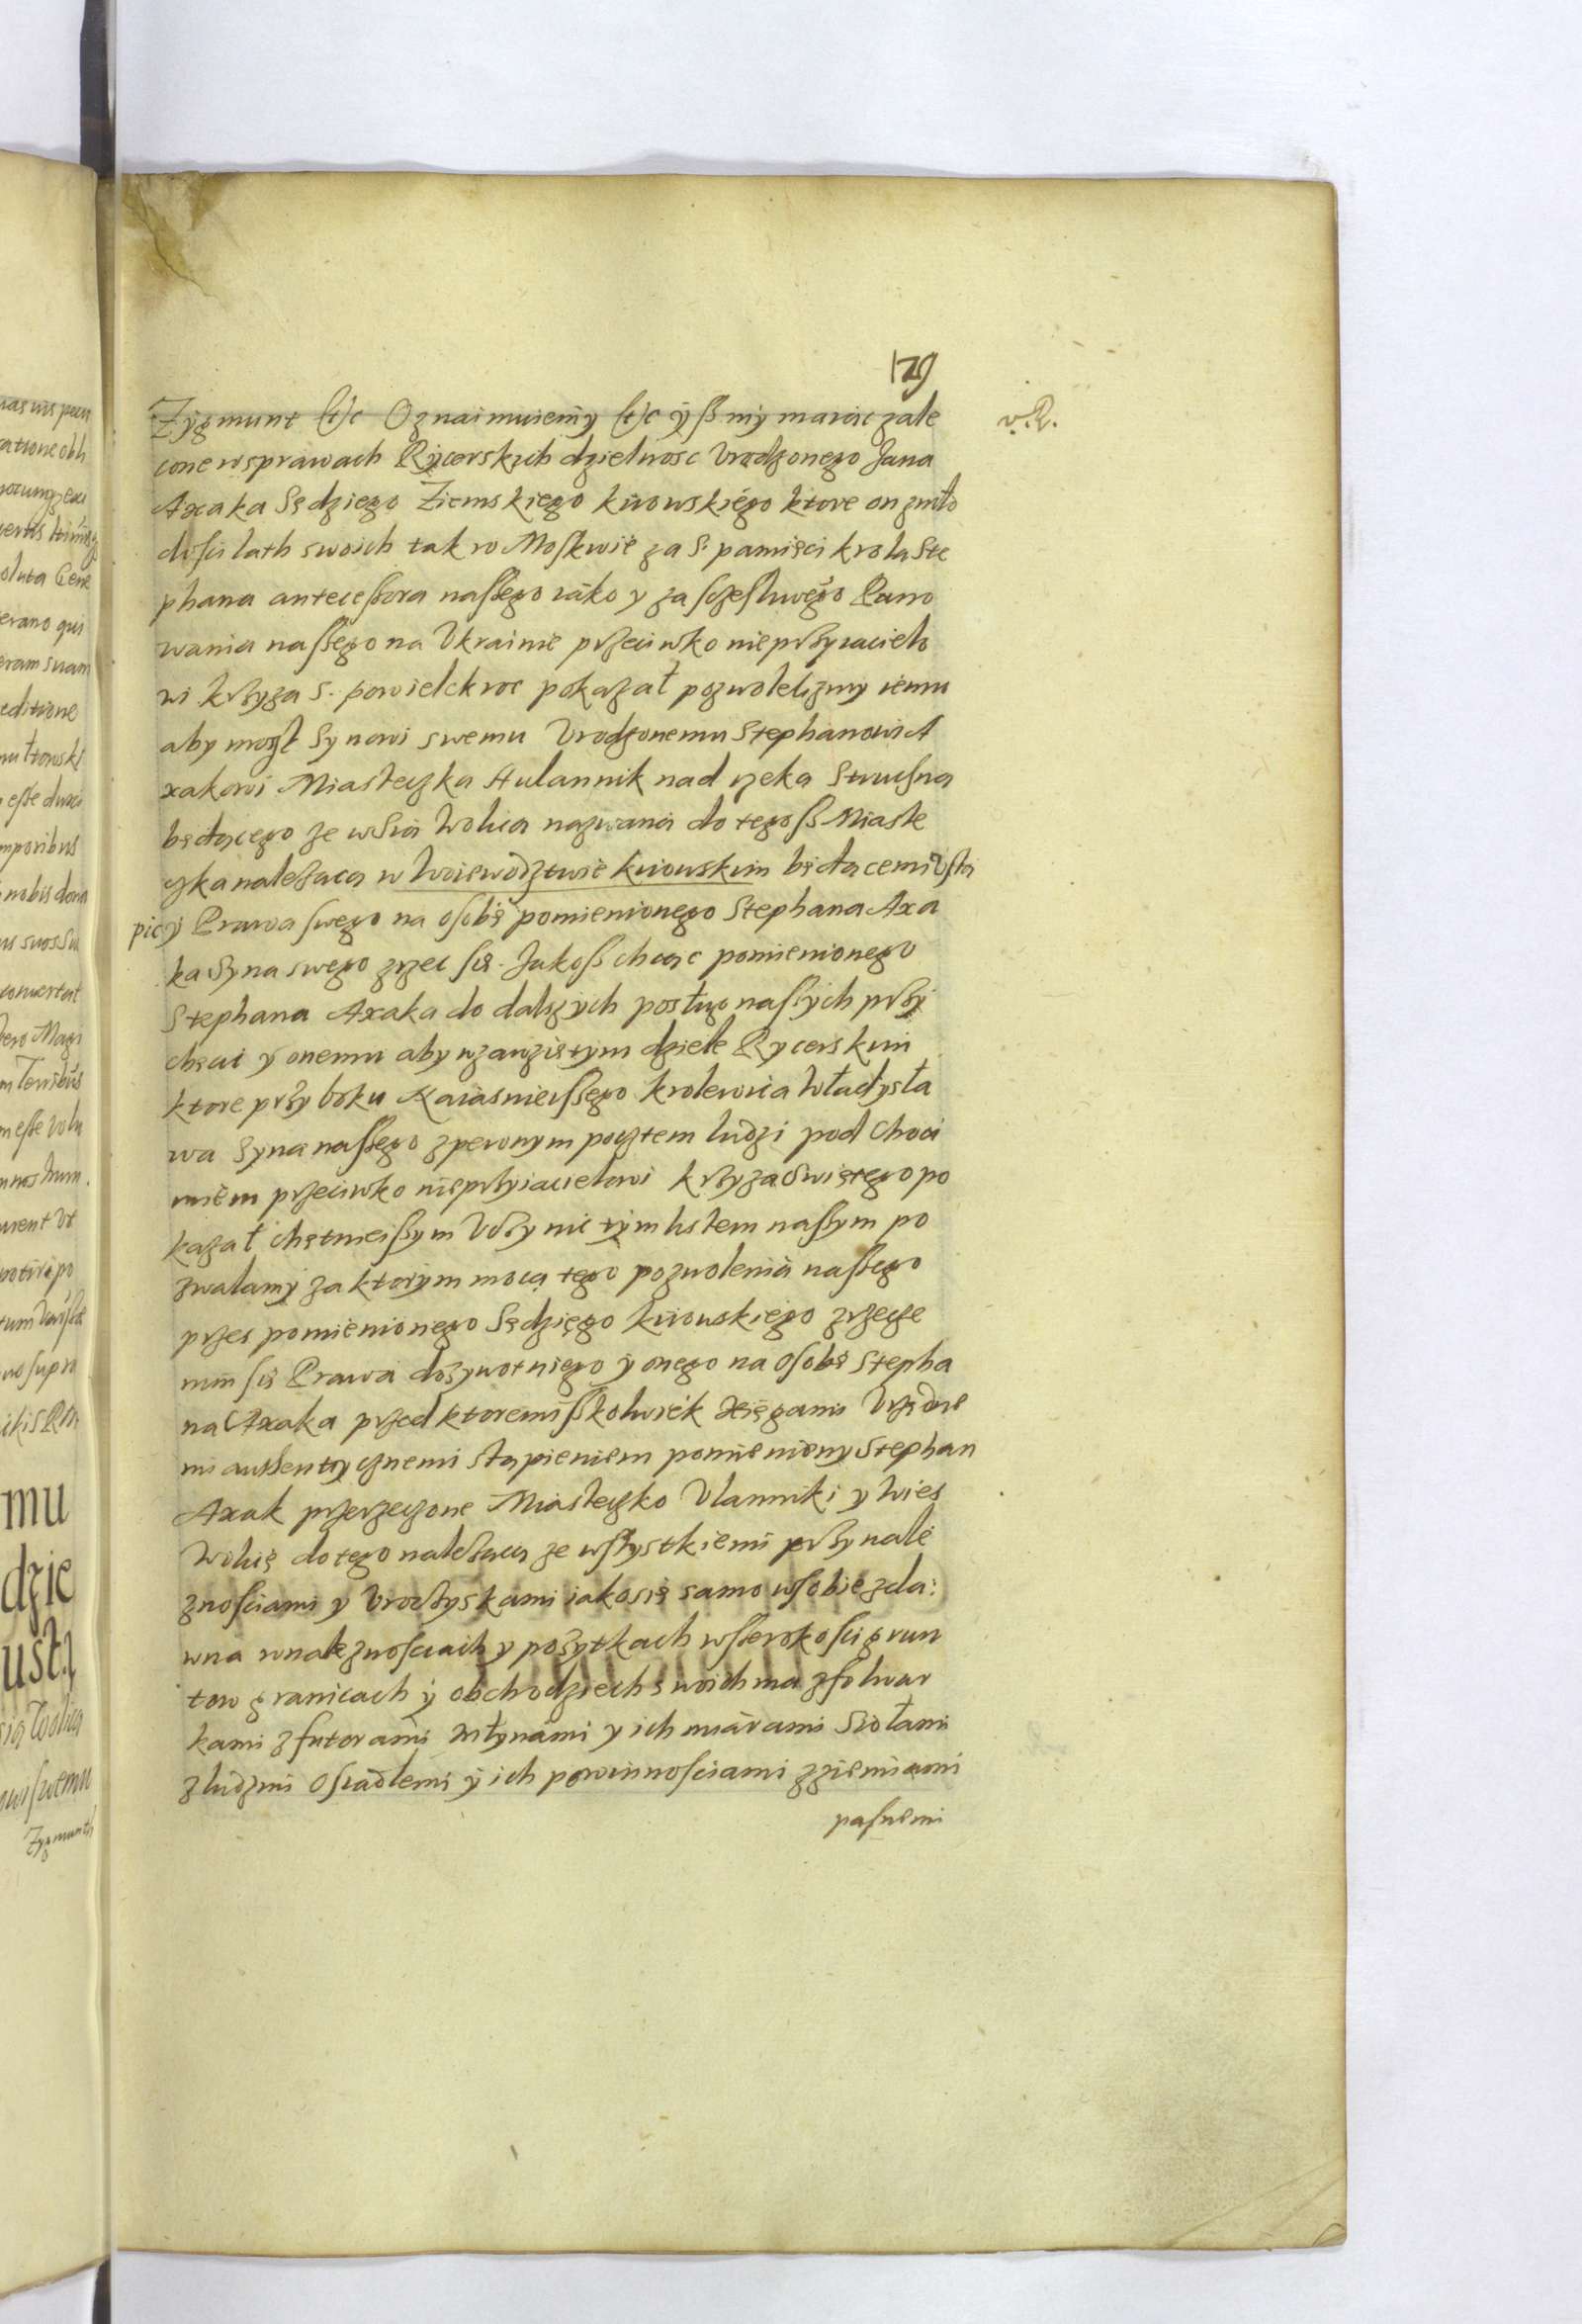 129
Zygmunt (t)c Oznaimuiemy (t)c yß my maiąc zale
cone w sprawach Rycerskich dzielnosc Vrodzonego Jana
Axaka Sędziego Ziemskiego kiiowskiego ktore on z mło
dości lath swoich tak w Moskwie za S. pamięci krola Ste
phana antecessora naßego iako y za sczesliwego Pano
wania naßego na Vkrainie przeciwko nieprzyiacielo
wi krzyza S. powielekroc pokazał pozwolelizmy iemu
aby mogł Synowi swemu Vrodzonemu Stephanowi A
xakowi Miasteczka Hulannik nad rzeka
będącego ze wsia Wolica nazwana do tegoß Miaste
czka nalezaca w Woiewodztwie kiiowskim będacemi Vsta
pic y Prawa swego na osobę pomienionego Stephana Axa
ka Syna swego zrzec się. Jakoß chcąc pomienionego
Stephana Axaka do dalszych posług naßych przy
chęcic y onemu aby w zawziętym dziele Rycerskim
ktore przy boku Naiasnieißego krolewica Władysła
wa Syna naßego z pewnym pocztem ludzi pod Choci
miem przeciwko nieprzyiacielowi krzyza Swiętego po
kazał chętnieißym Vczynic tym listem naßym po
zwalamy za ktorym mocą tego pozwolenia naßego
przes pomienionego Sędziego kiiowskiego zrzecze
nim się Prawa dozywotniego y onego na osobę Stepha
na Axaka przed ktoremißkolwiek xięgami Vrzędne
mi authentycznemi stąpieniem pomieniony Stephan
Axak przerzeczone Miasteczko Vlanniki y wies
Wolicę do tego nalezaca ze wßystkiemi przynale
znosciami y Vroczyskami iako się samo w sobie z da:
wna w naleznosciach y pozytkach w ßerokosci grun
tow granicach y obchodziech swoich ma z folwar
kami z futorami młynami y ich miarami Siołami
z ludzmi osiadłemi y ich powinnosciami z ziemiami
pasnemi